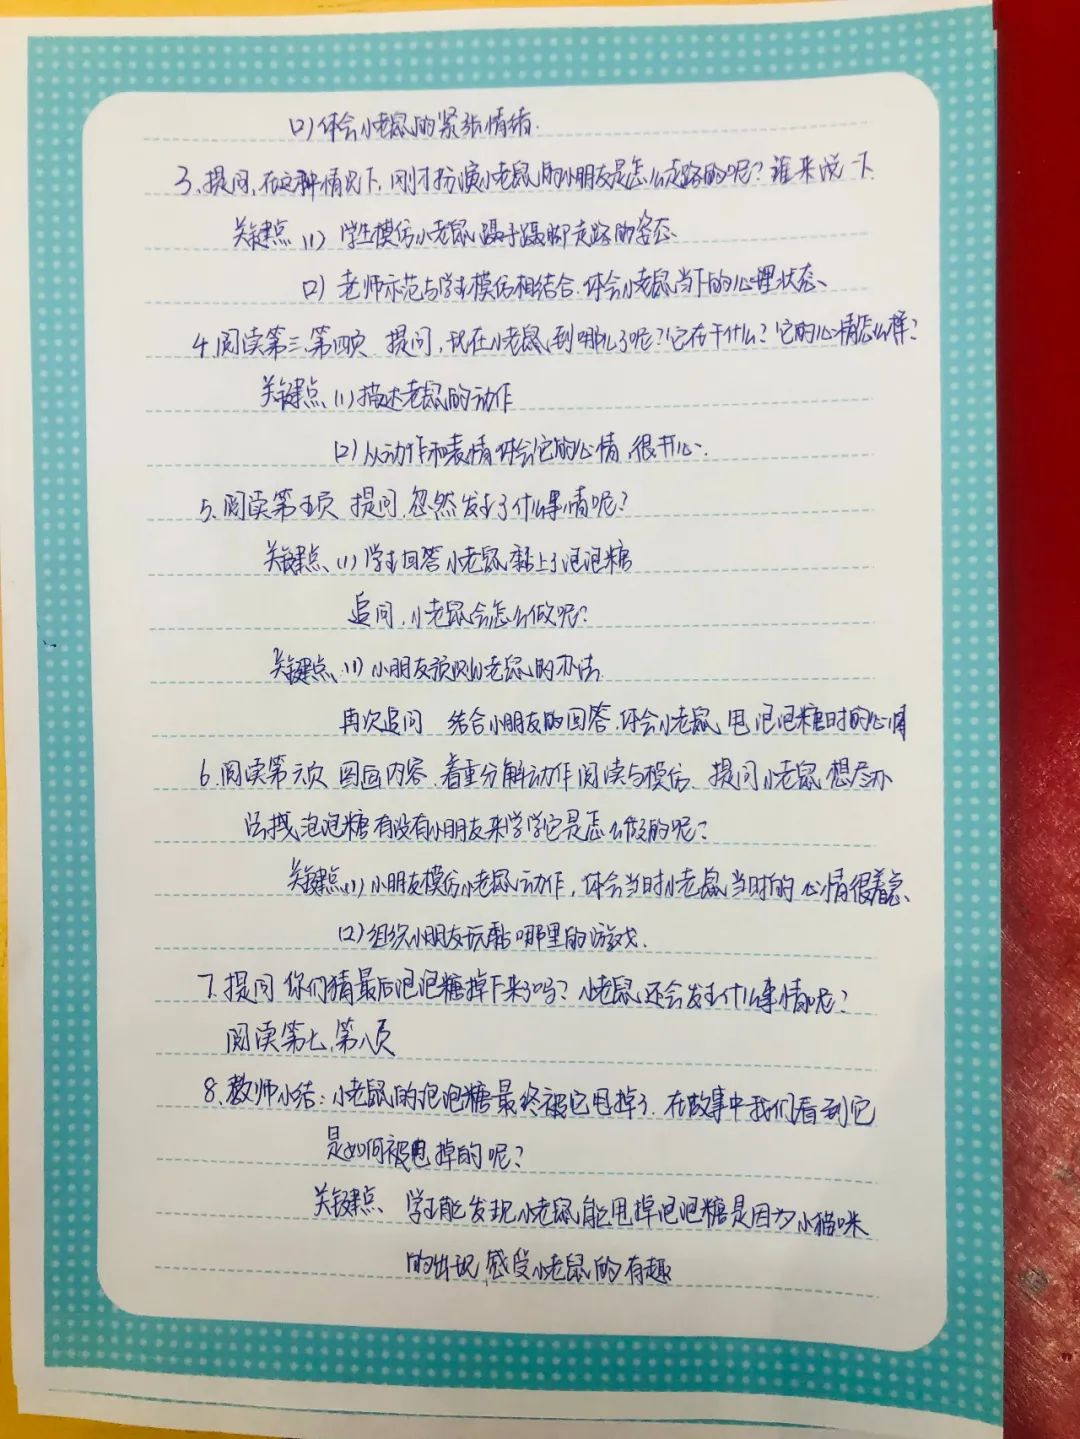 (2)体会小老鼠的紧张情绪.
3.提问,在这种情况下,刚才扮演小老鼠的小朋友是怎么走路的呢?谁来说一下.
关键点 (1) 学生模仿小老鼠蹑手蹑脚走路的姿态、
(2) 老师示范与学生模仿相结合.体会小老鼠当下的心理状态、
4.阅读第三、第四页 提问,现在小老鼠到哪儿了呢?它在干什么?它的心情怎么样?
关键点、(1)描述老鼠的动作
(2)从动作和表情体会它的心情,很开心.
5、阅读第五页 提问,忽然发生了什么事情呢?
关键点、(1)学生回答小老鼠黏上了泡泡糖
追问,小老鼠会怎么做呢?
关键点、(1)小朋友预测小老鼠的办法.
再次追问 结合小朋友的回答.体会小老鼠甩泡泡糖时的心情
6.阅读第六页 图画内容.着重分解动作阅读与模仿.提问小老鼠想尽办
法找泡泡糖有没有小朋友来学学它是怎么做的呢?
关键点(1)小朋友模仿小老鼠动作,体会当时小老鼠当时的心情很着急、
(2)组织小朋友玩黏哪里的游戏.
7.提问 你们猜最后泡泡糖掉下来了吗?小老鼠还会发生什么事情呢?
阅读第七、第八页
8、教师小结:小老鼠的泡泡糖最终被它甩掉了.在故事中我们看到它
是如何被甩掉的呢?
关键点、学生能发现小老鼠能甩掉泡泡糖是因为小猫咪
的出现,感受小老鼠的有趣